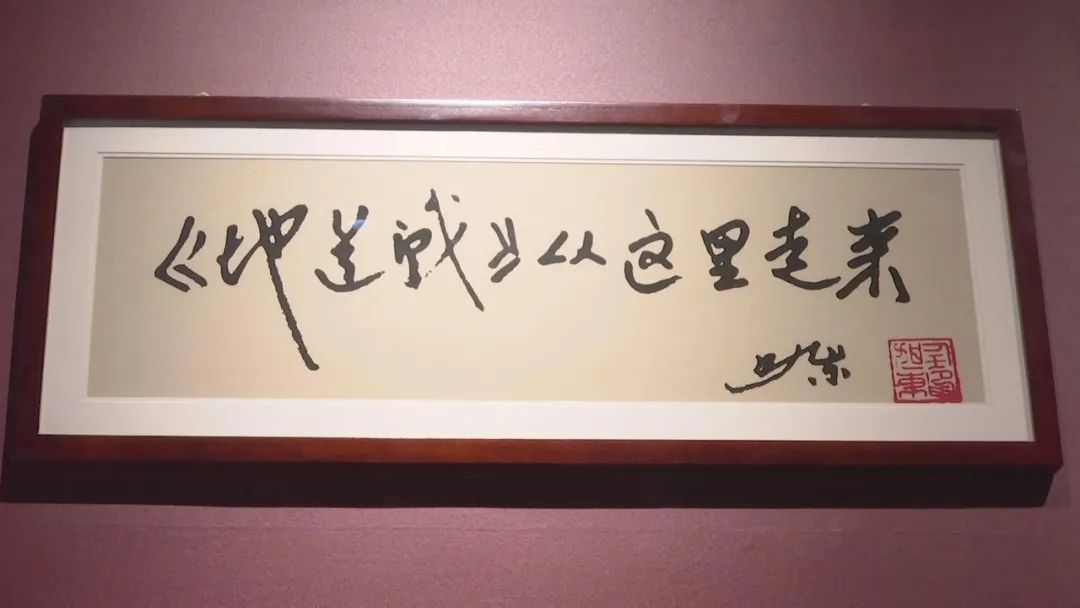 《地道战》从这里走来
旭东